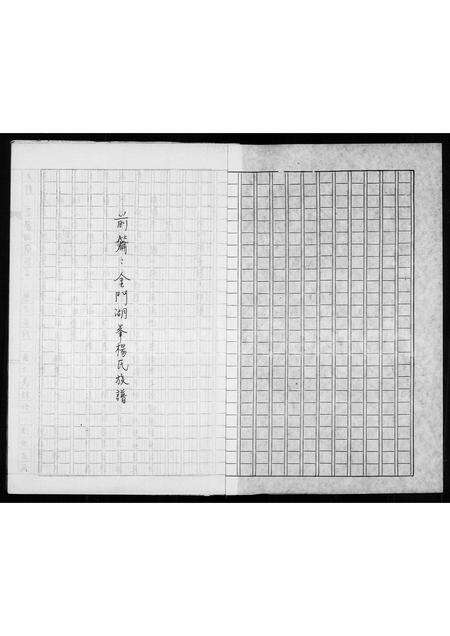 前篇：金門湖峯楊氏族譜